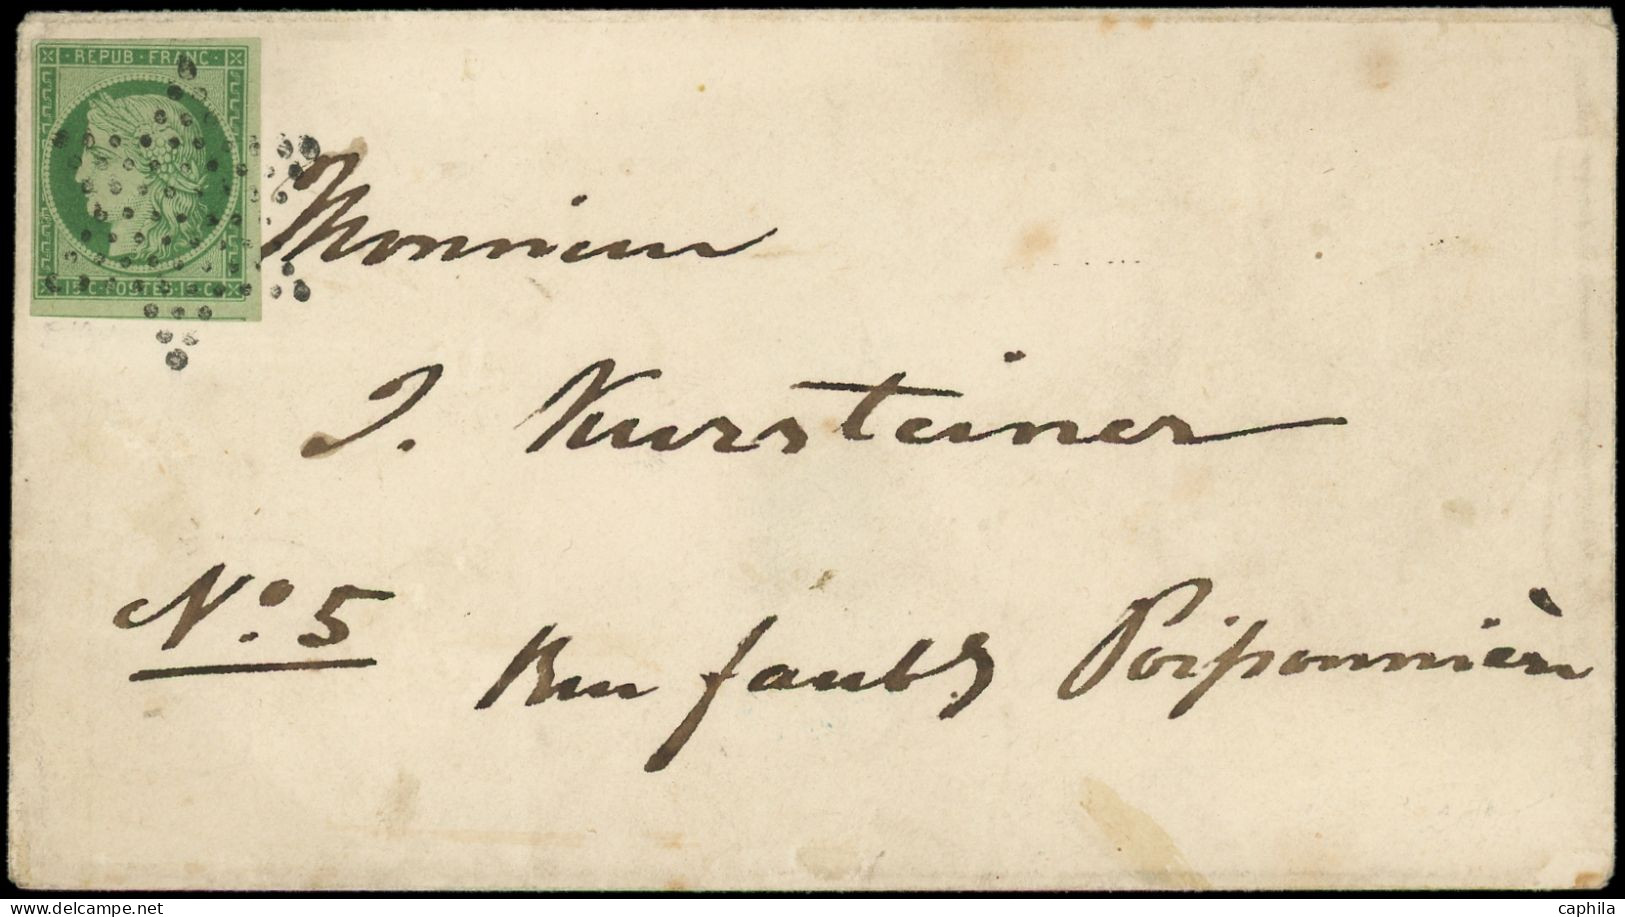 REPUB · FRANC
15 C · POSTES · 15 C
Monsieur
J. Kursteiner
Nº 5
Rue faubg Poissonnière
www.delcampe.net
caphila